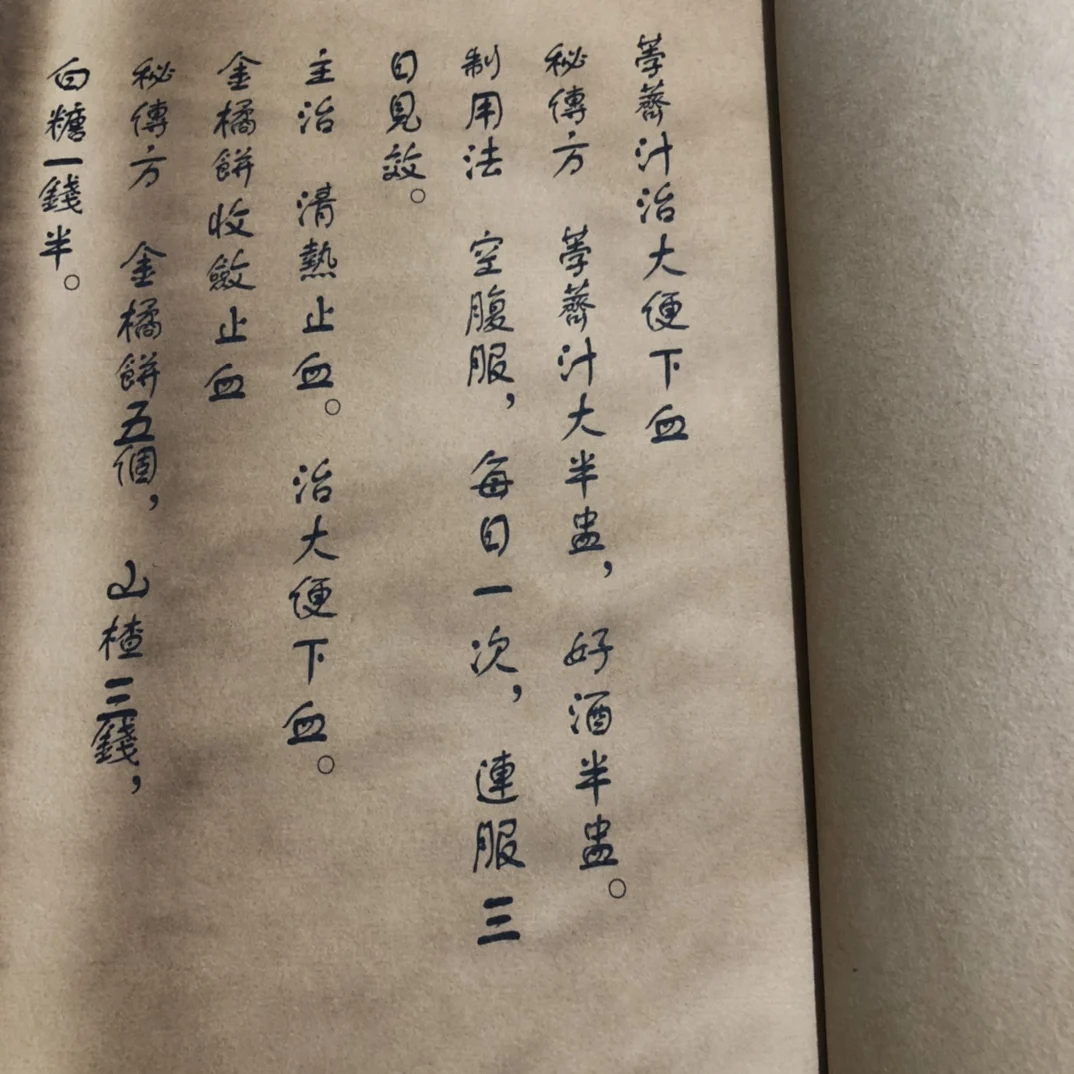 荸薺汁治大便下血
秘傳方　荸薺汁大半盅，好酒半盅。
制用法　空腹服，每日一次，連服三
日見效。
主治　清熱止血。治大便下血。
金橘餅收斂止血
秘傳方　金橘餅五個，山楂三錢，
白糖一錢半。